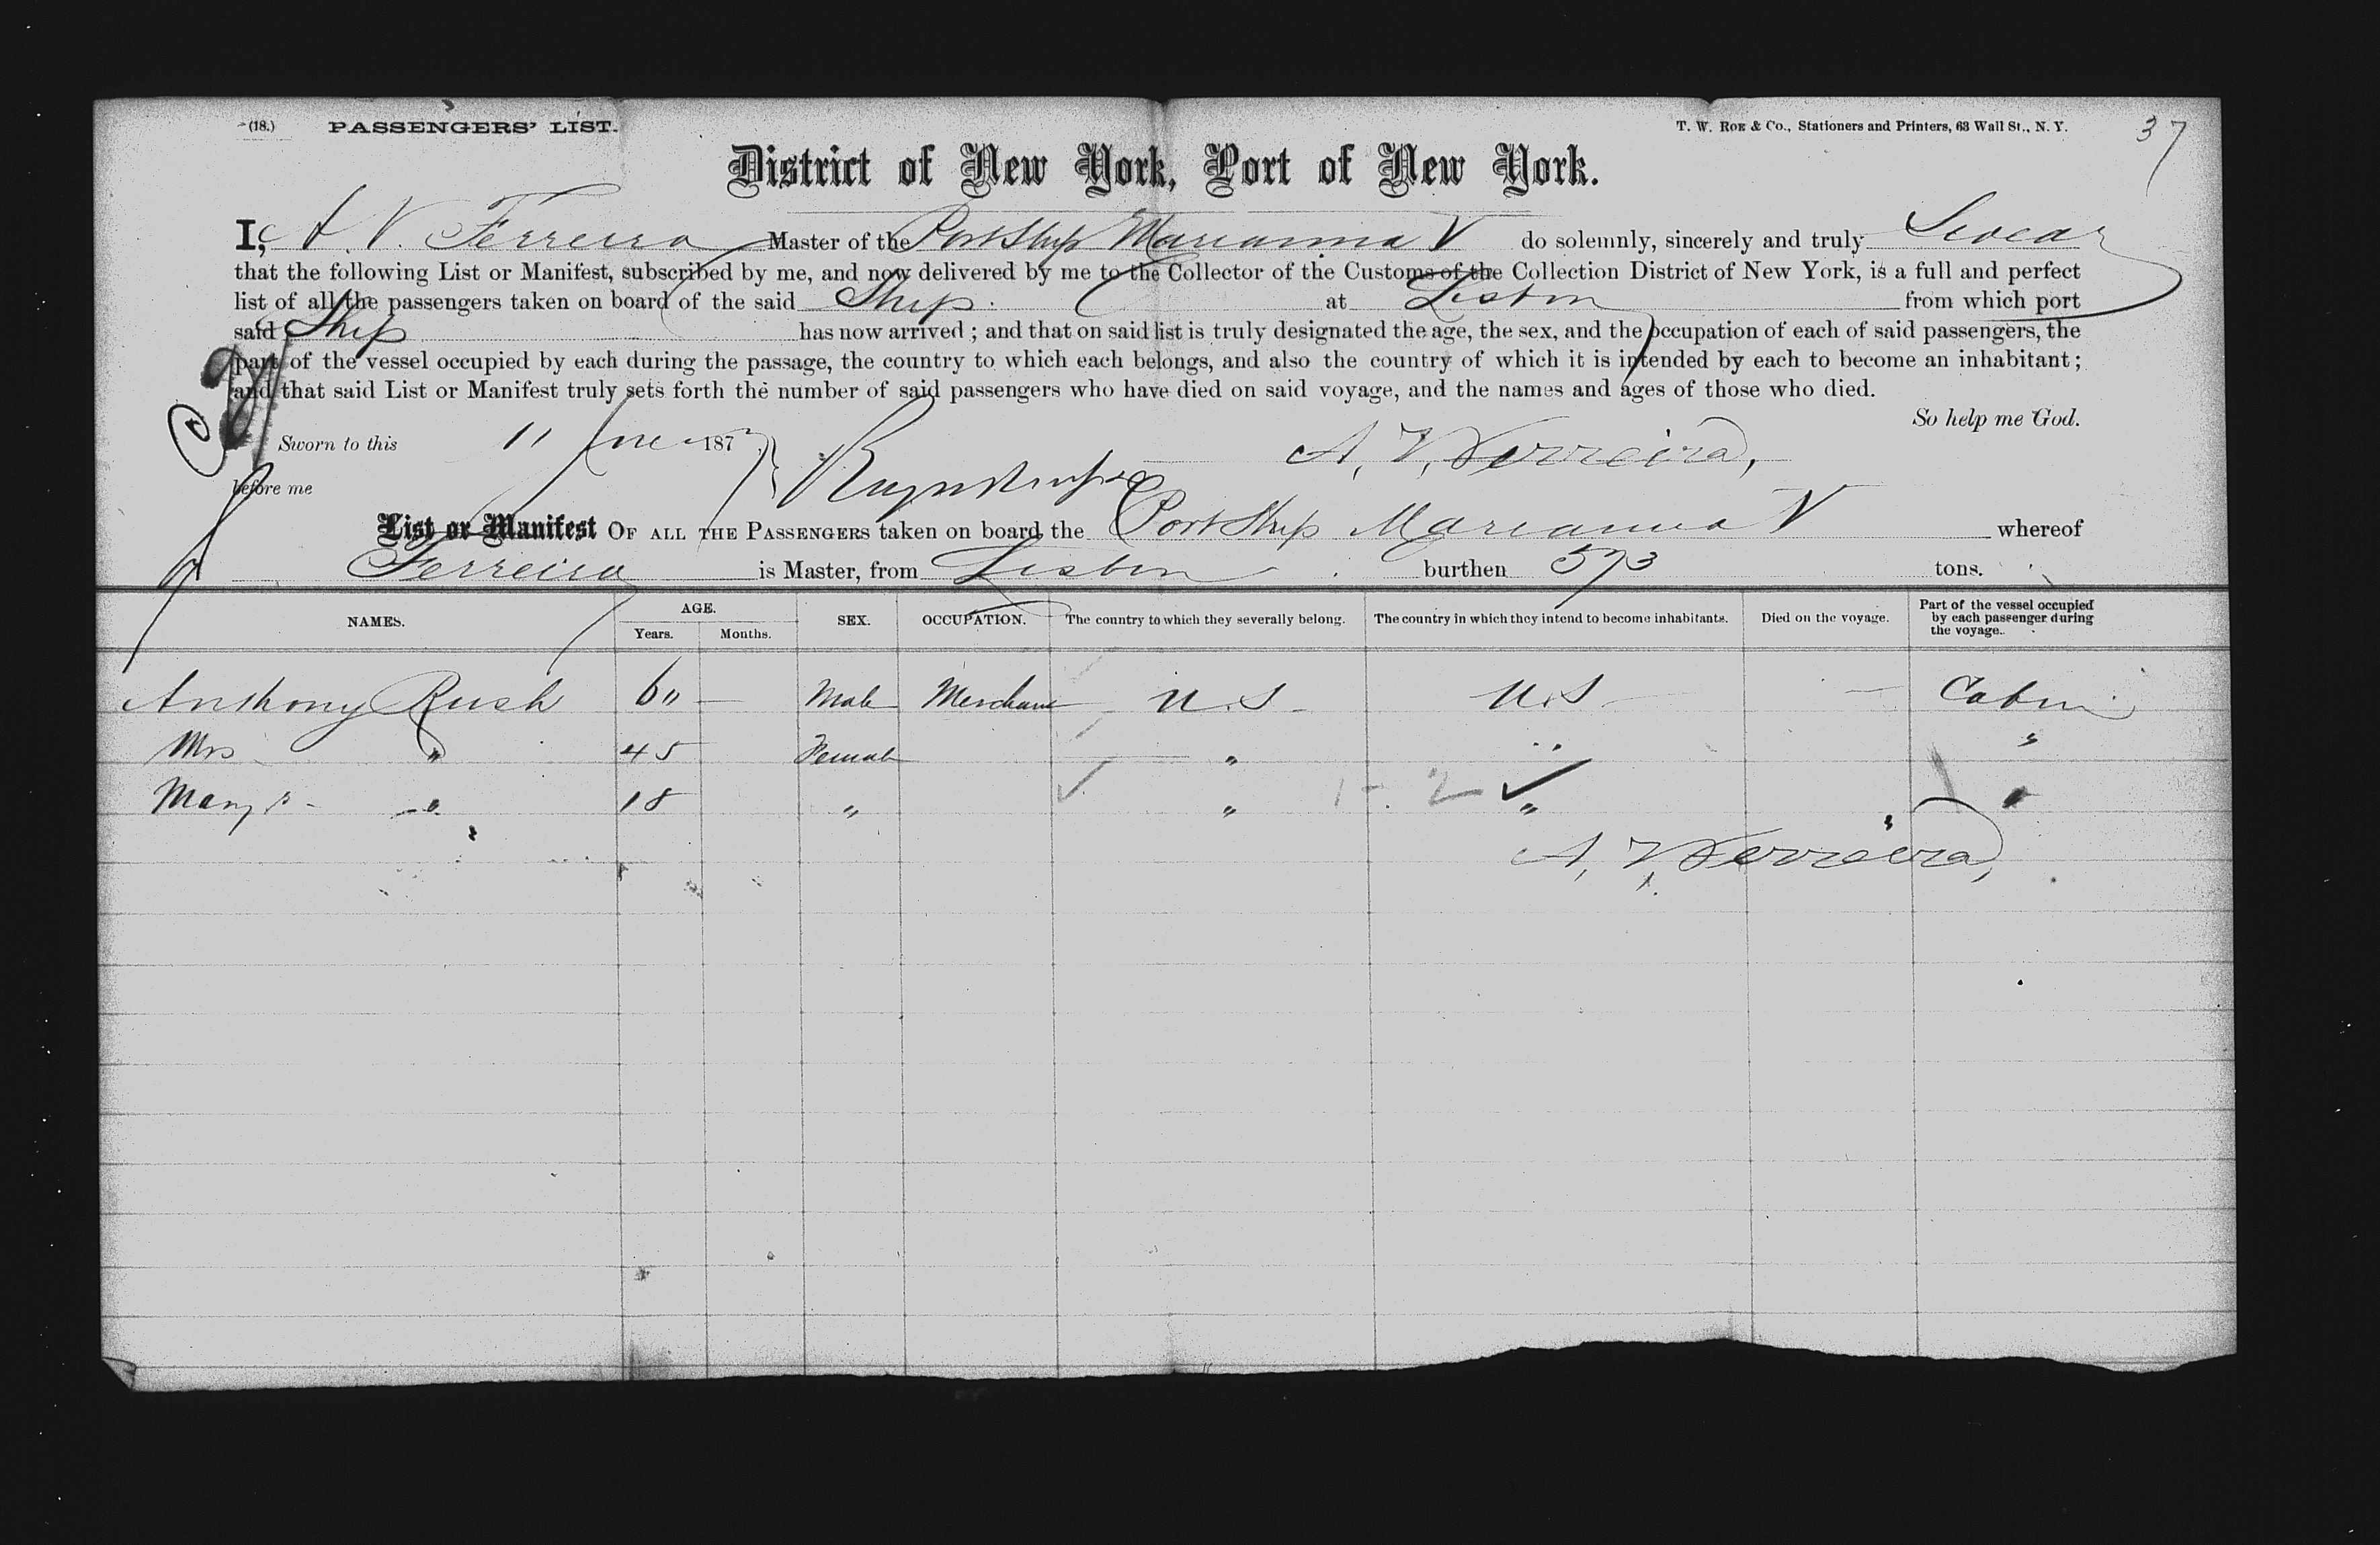 (18.) PASSENGERS' LIST. T. W. ROE & Co., Stationers and Printers, 63 Wall St., N. Y. 37
District of New York, Port of New York.
I, A. V. Ferreira Master of the Port Ship Marianna V do solemnly, sincerely and truly Swear
that the following List or Manifest, subscribed by me, and now delivered by me to the Collector of the Customs of the Collection District of New York, is a full and perfect
list of all the passengers taken on board of the said Ship at Lisbon from which port
said Ship has now arrived ; and that on said list is truly designated the age, the sex, and the occupation of each of said passengers, the
part of the vessel occupied by each during the passage, the country to which each belongs, and also the country of which it is intended by each to become an inhabitant ;
and that said List or Manifest truly sets forth the number of said passengers who have died on said voyage, and the names and ages of those who died.
So help me God.
Sworn to this 11 June 187 A. V. Ferreira,
before me
List or Manifest OF ALL THE PASSENGERS taken on board the Port Ship Marianna V whereof
Ferreira is Master, from Lisbon burthen 573 tons.
NAMES. AGE. Years. Months. SEX. OCCUPATION. The country to which they severally belong. The country in which they intend to become inhabitants. Died on the voyage. Part of the vessel occupied by each passenger during the voyage.
Anthony Rush 60 — Male Merchant U.S U.S — Cabin
Mrs " 45 Female " " "
Mary " 18 " " " "
1 - 2
A. V. Ferreira,